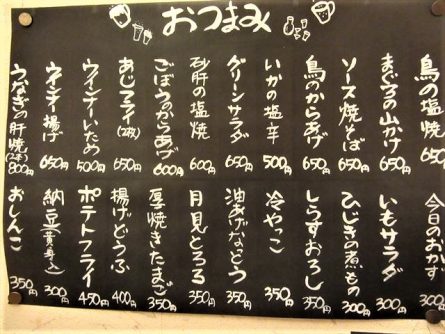 おつまみ
鳥の塩焼 650円
まぐろの山かけ 650円
ソース焼そば 650円
鳥のからあげ 650円
いかの塩辛 500円
グリーンサラダ 650円
砂肝の塩焼 600円
ごぼうのからあげ 600円
あじフライ(2枚) 650円
ウインナいため 500円
ウインナ揚げ 650円
うなぎの肝焼(2本) 800円
今日のおかず
いもサラダ 300円
ひじきの煮もの 300円
しらすおろし 350円
冷やっこ 300円
油あげなっとう 350円
月見とろろ 350円
厚焼きたまご 350円
揚げどうふ 400円
ポテトフライ 450円
納豆(黄身入) 300円
おしんこ 350円